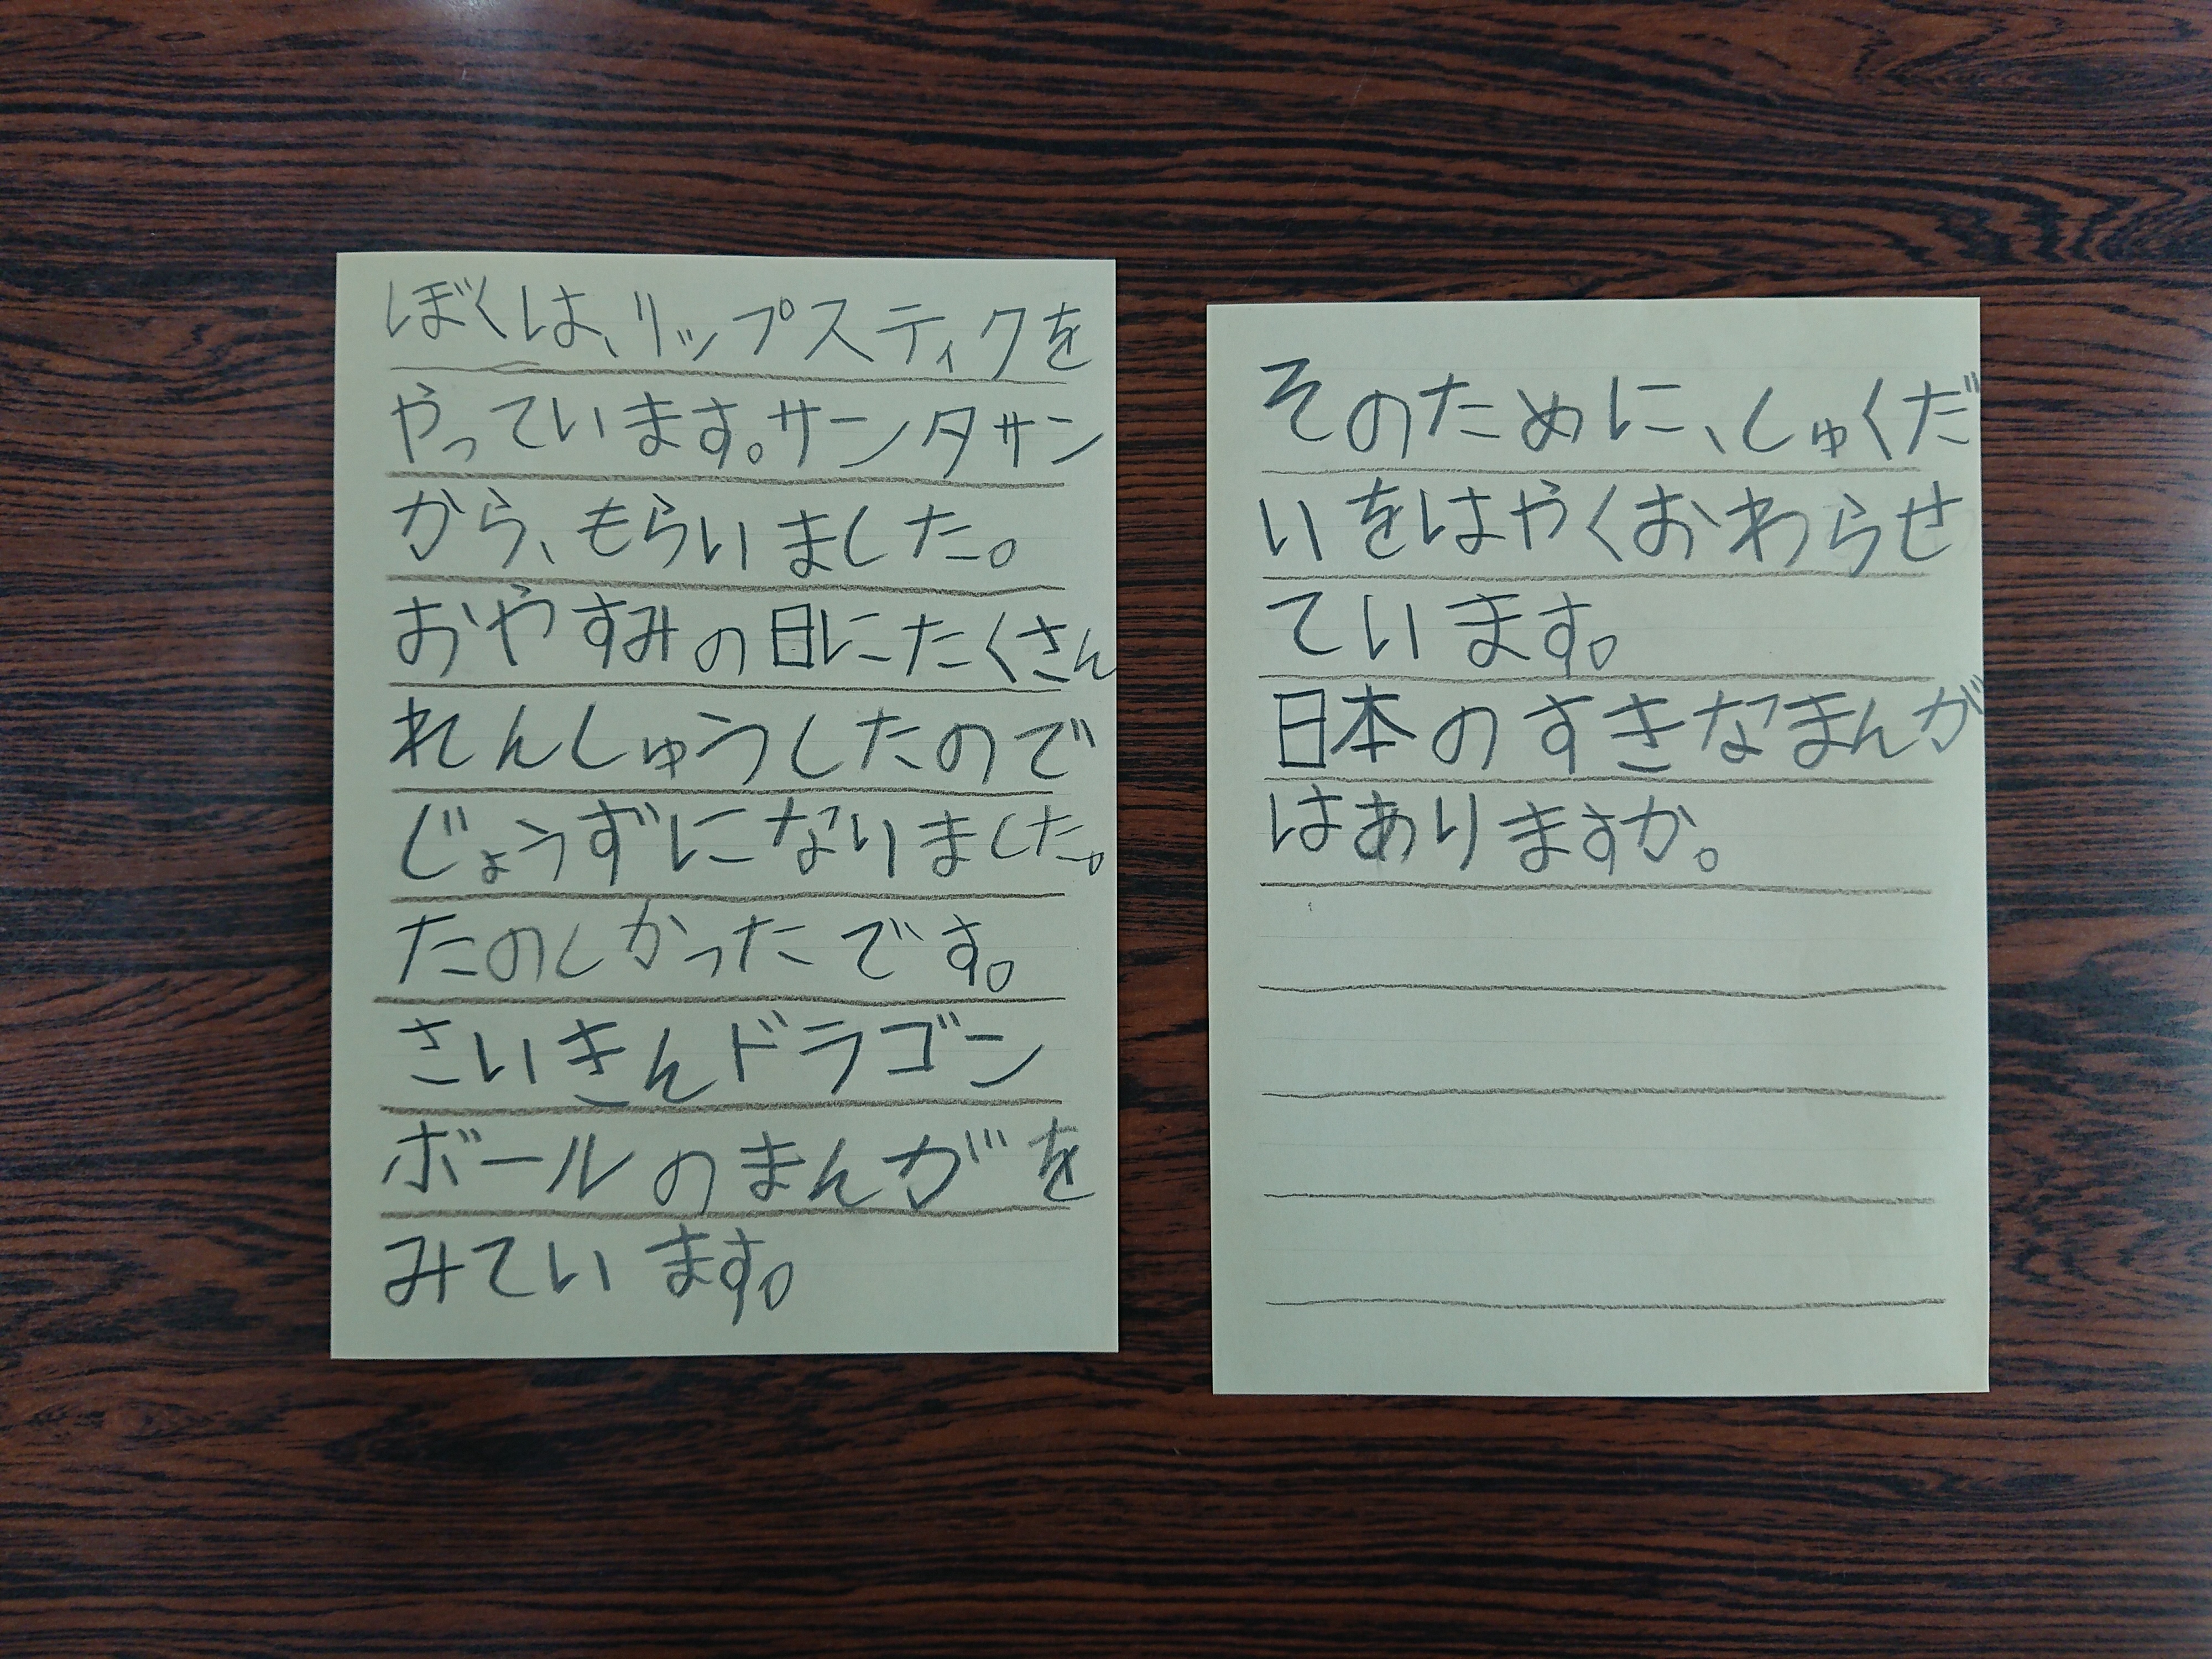 ぼくは、リップスティクを
やっています。サンタサン
から、もらいました。
おやすみの日にたくさん
れんしゅうしたので
じょうずになりました。
たのしかったです。
さいきんドラゴン
ボールのまんがを
みています。
そのために、しゅくだ
いをはやくおわらせ
ています。
日本のすきなまんが
はありますか。